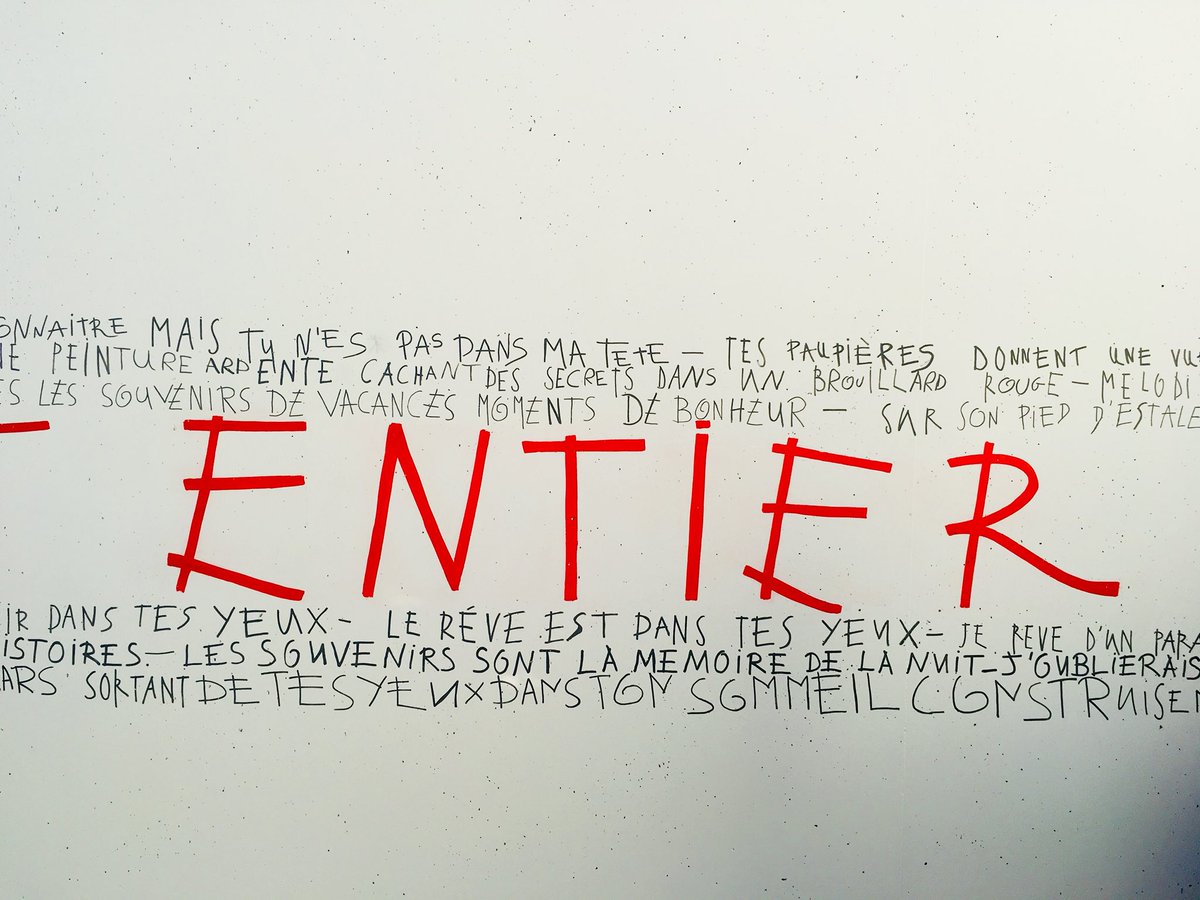 ONNAITRE MAIS TU N'ES PAS DANS MA TETE – TES PAUPIÈRES DONNENT UNE VU
NE PEINTURE ARDENTE CACHANT DES SECRETS DANS UN BROUILLARD ROUGE – MELODI
ES LES SOUVENIRS DE VACANCES MOMENTS DE BONHEUR – SUR SON PIED D'ESTALE
T ENTIER
IR DANS TES YEUX – LE RÉVE EST DANS TES YEUX – JE REVE D'UN PARA
ISTOIRES – LES SOUVENIRS SONT LA MEMOIRE DE LA NUIT – J'OUBLIERAIS
ARS SORTANT DE TES YEUX DANS TON SOMMEIL CONSTRUISEN